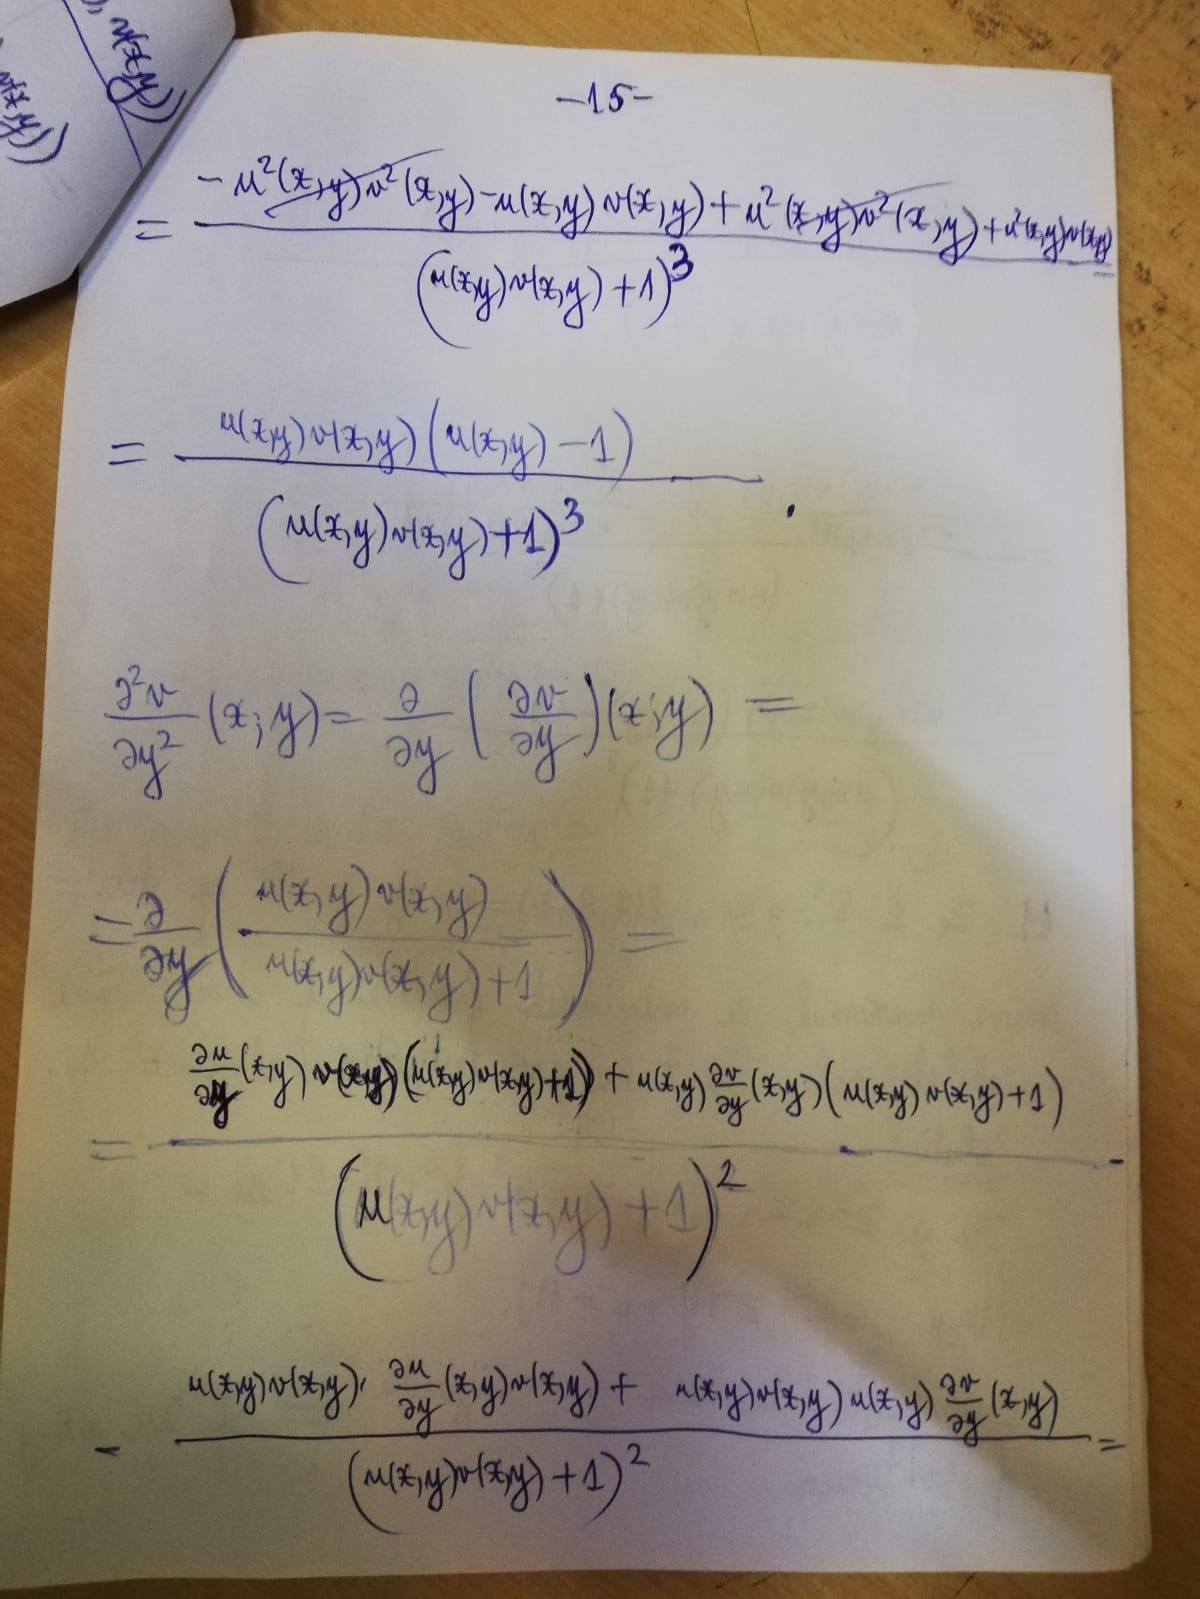 v(x,y))
v(x,y))
-15-
= (-u²(x,y)v²(x,y)-u(x,y)v(x,y)+u²(x,y)v²(x,y)+u²(x,y)v(x,y)) / (u(x,y)v(x,y)+1)³ =
= u(x,y)v(x,y)(u(x,y)-1) / (u(x,y)v(x,y)+1)³ .
∂²v/∂y² (x;y) = ∂/∂y (∂v/∂y)(x;y) =
= ∂/∂y (u(x,y)v(x,y) / u(x,y)v(x,y)+1) =
= (∂u/∂y (x,y) v(x,y)(u(x,y)v(x,y)+1) + u(x,y) ∂v/∂y (x,y)(u(x,y)v(x,y)+1)) / (u(x,y)v(x,y)+1)² -
- (u(x,y)v(x,y)· ∂u/∂y (x,y)v(x,y) + u(x,y)v(x,y)u(x,y) ∂v/∂y (x,y)) / (u(x,y)v(x,y)+1)² =